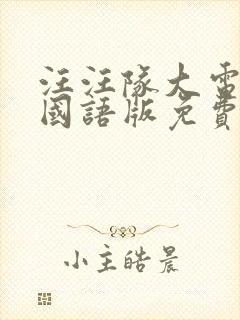 汪汪隊大電
國語版免費
小主皓晨